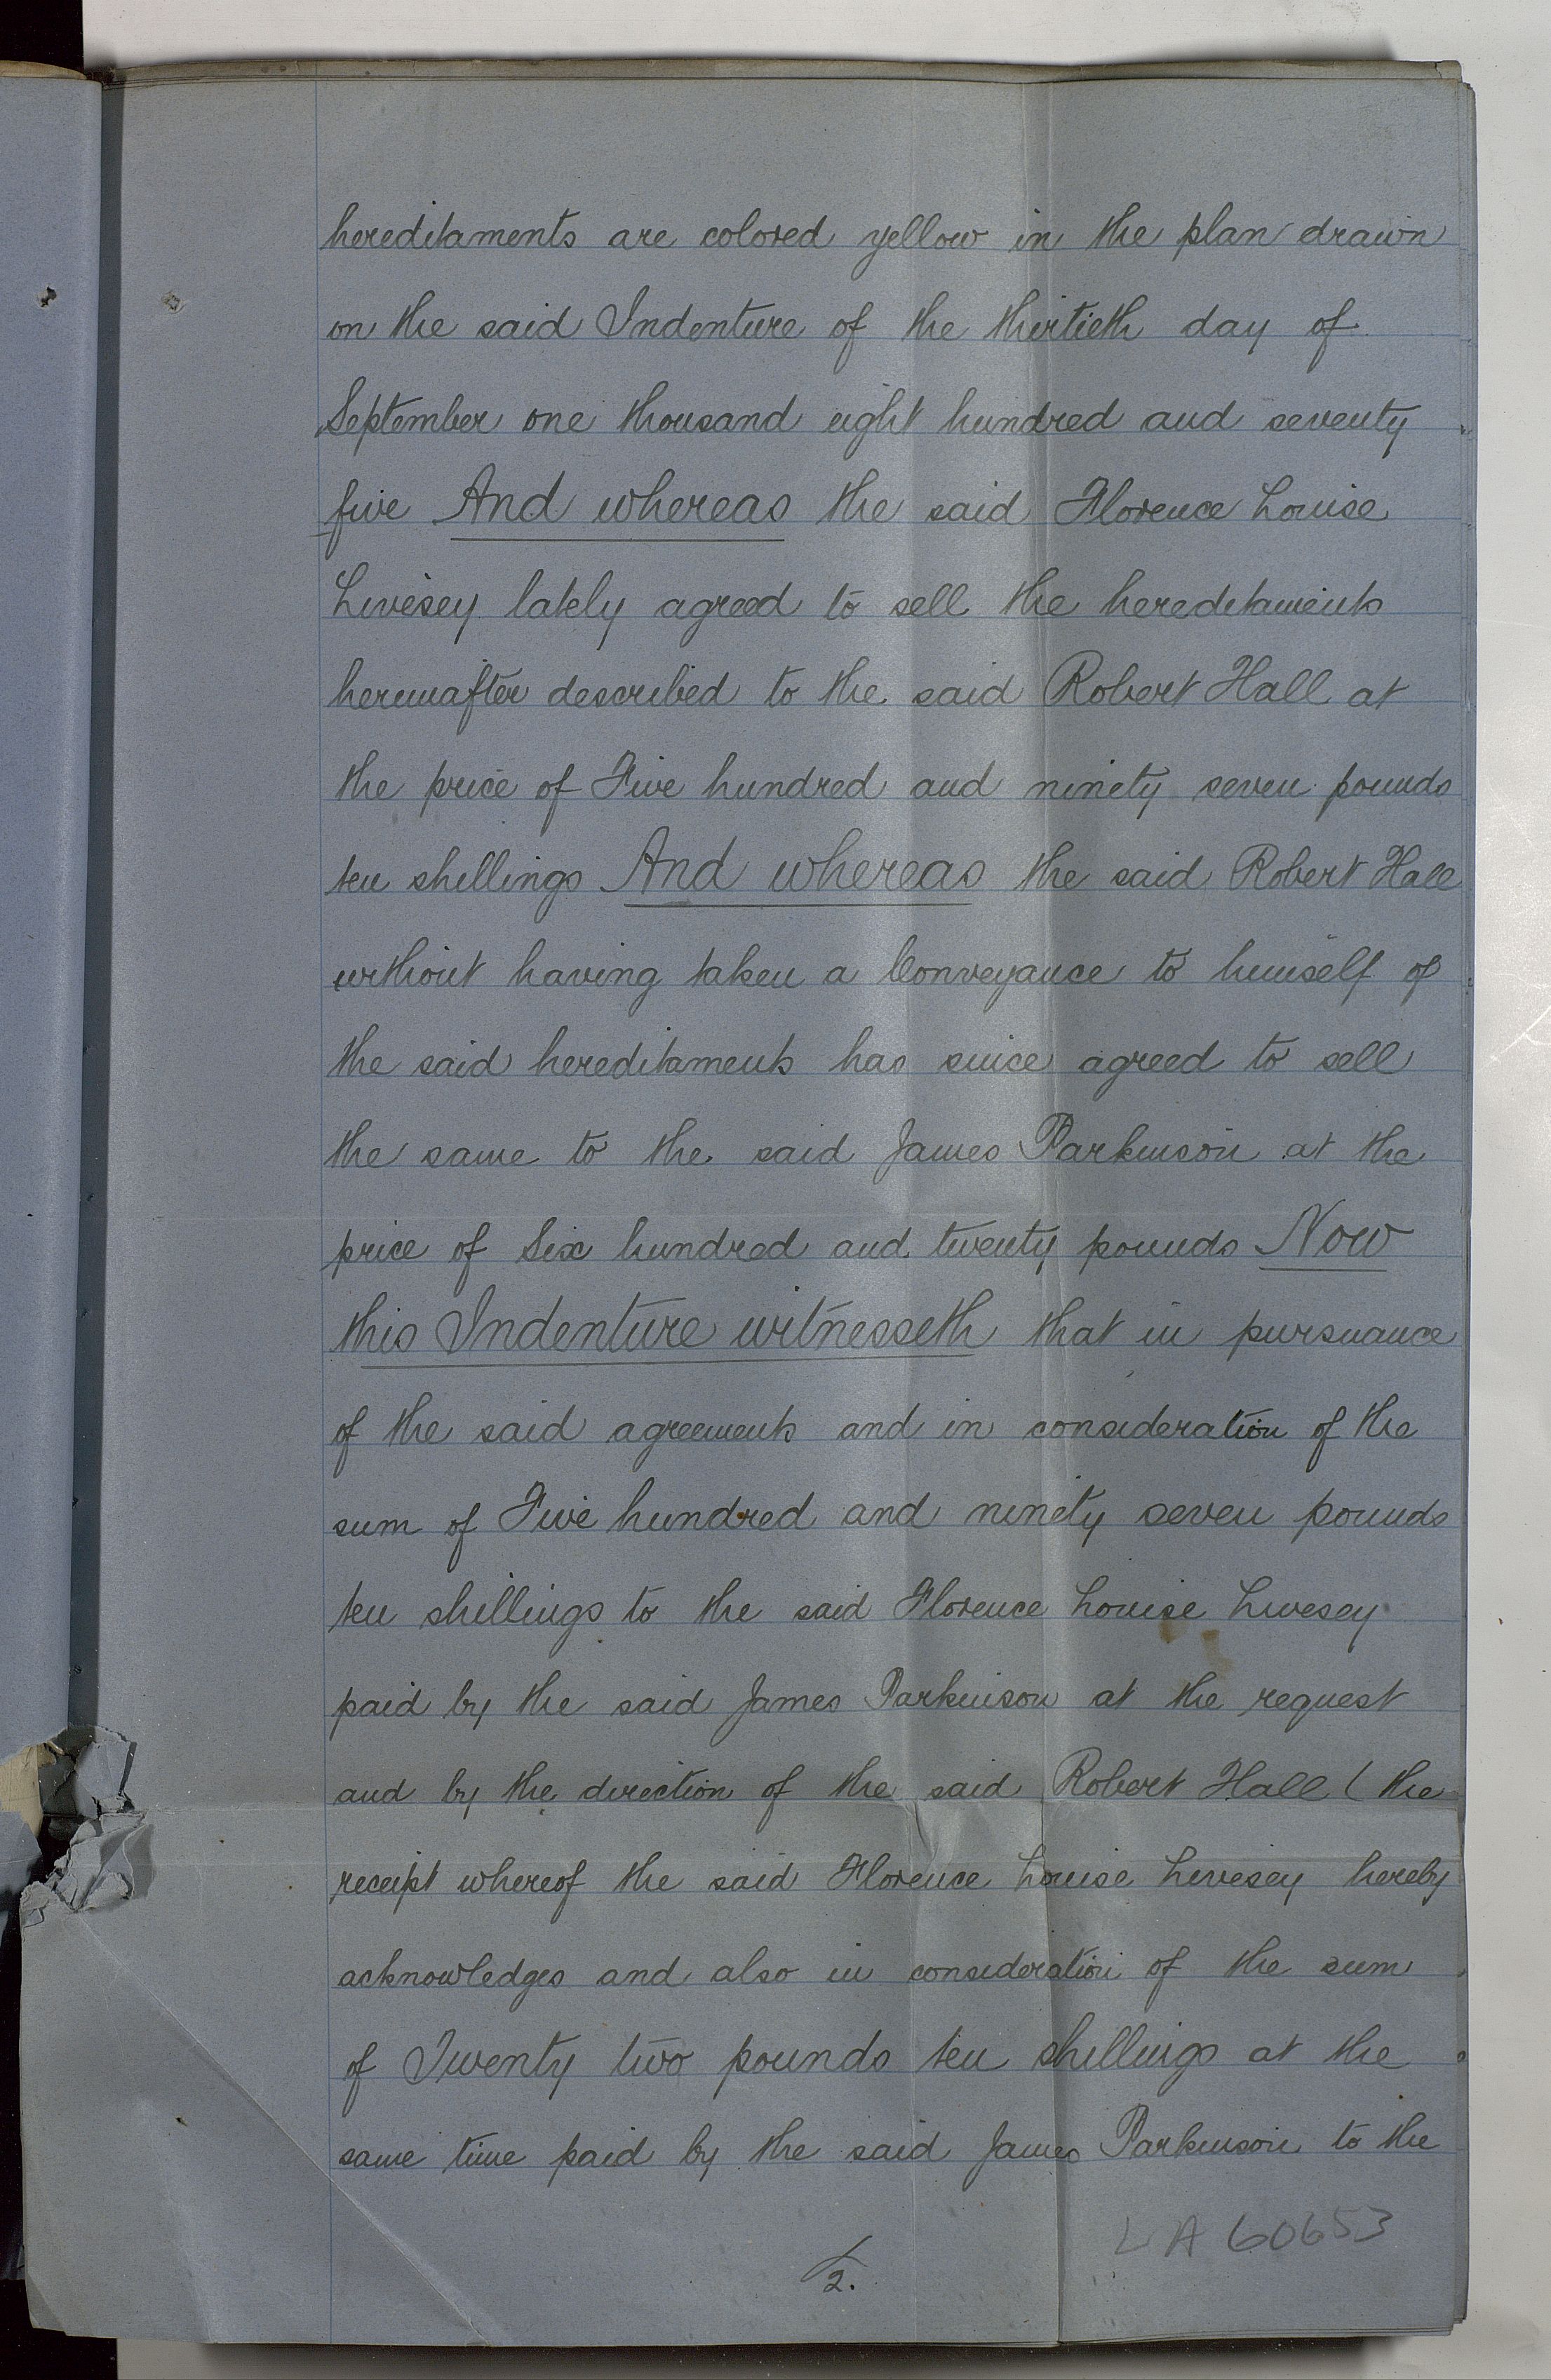 hereditaments are colored yellow in the plan drawn
on the said Indenture of the thirtieth day of
September one thousand eight hundred and seventy
five And whereas the said Florence Louise
Livesey lately agreed to sell the hereditaments
hereinafter described to the said Robert Hall at
the price of Five hundred and ninety seven pounds
ten shillings And whereas the said Robert Hall
without having taken a Conveyance to himself of
the said hereditaments has since agreed to sell
the same to the said James Parkinson at the
price of Six hundred and twenty pounds Now
this Indenture witnesseth that in pursuance
of the said agreements and in consideration of the
sum of Five hundred and ninety seven pounds
ten shillings to the said Florence Louise Livesey
paid by the said James Parkinson at the request
and by the direction of the said Robert Hall ( the
receipt whereof the said Florence Louise Livesey hereby
acknowledges and also in consideration of the sum
of Twenty two pounds ten shillings at the
same time paid by the said James Parkinson to the
LA 60653
2.